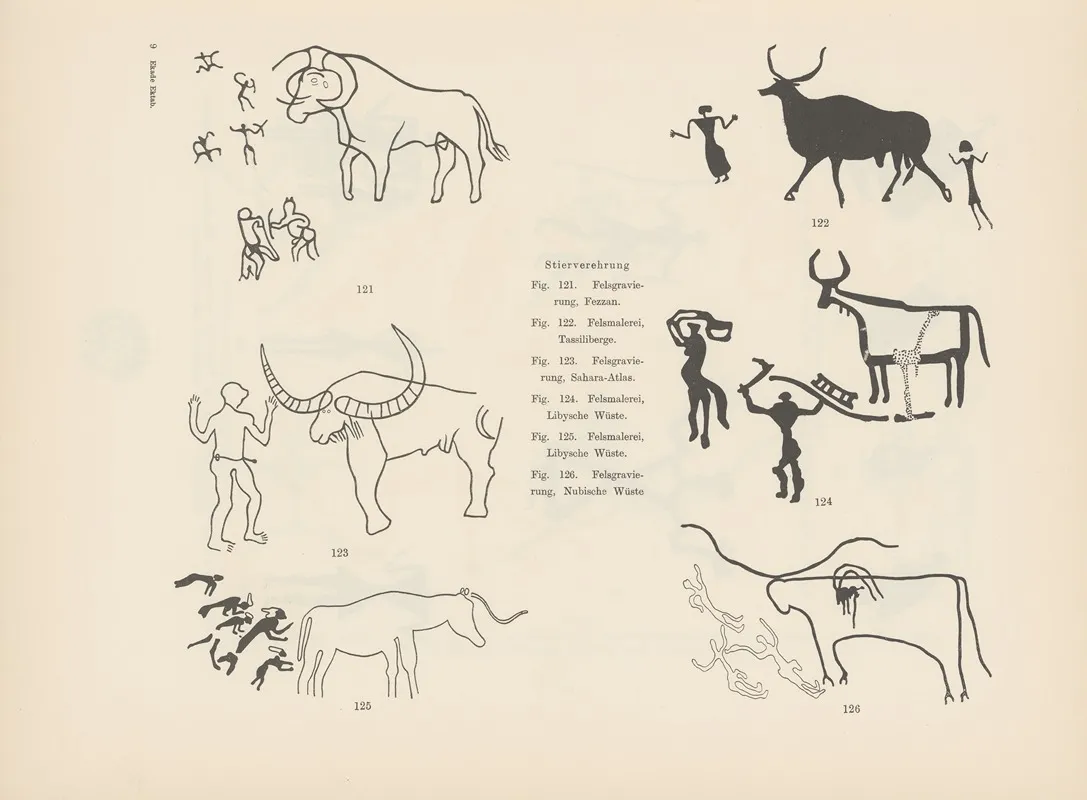 9 Ekade Ektab.
121
122
Stierverehrung
Fig. 121. Felsgravie-
rung, Fezzan.
Fig. 122. Felsmalerei,
Tassiliberge.
Fig. 123. Felsgravie-
rung, Sahara-Atlas.
Fig. 124. Felsmalerei,
Libysche Wüste.
Fig. 125. Felsmalerei,
Libysche Wüste.
Fig. 126. Felsgravie-
rung, Nubische Wüste
123
124
125
126